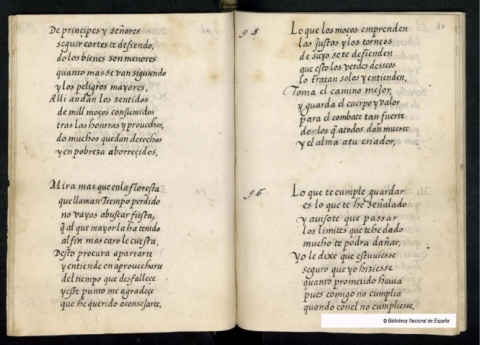 De príncipes y señores
seguir cortes te defiendo,
do los bienes son menores
quanto mas se van siguiendo
y los peligros mayores,
Alli andan los sentidos
de mill moços consumidos
tras las honrras y prouechos,
do muchos quedan desechos
y en pobreza aborrecidos,
Mira mas que en la floresta
que llaman Tiempo perdido
no vayas a buscar fiesta,
q̃ al que mayor la ha tenido
al fin mas caro le cuesta,
Desto procura apartarte
y entiende en aprouecharte
del tiempo que desfallece
y este punto me agradece
que he querido aconsejarte,
95
Lo que los moços emprenden
las justas y los torneos
de suyo se te defienden
que esto los verdes desseos
lo tratan solos y entienden,
Toma el camino mejor,
y guarda el cuerpo y valor
para el combate tan fuerte
de los q̃ a todos dan muerte
y el alma a tu criador,
96
Lo que te cumple guardar
es lo que te he señalado
y auisote que passar
los limites que te he dado
mucho te podra dañar,
Yo le dixe que estuuiesse
seguro que yo hiziesse
quanto prometido hauia
pues comigo no cumplia
quando con el no cumpliesse,
© Biblioteca Nacional de España